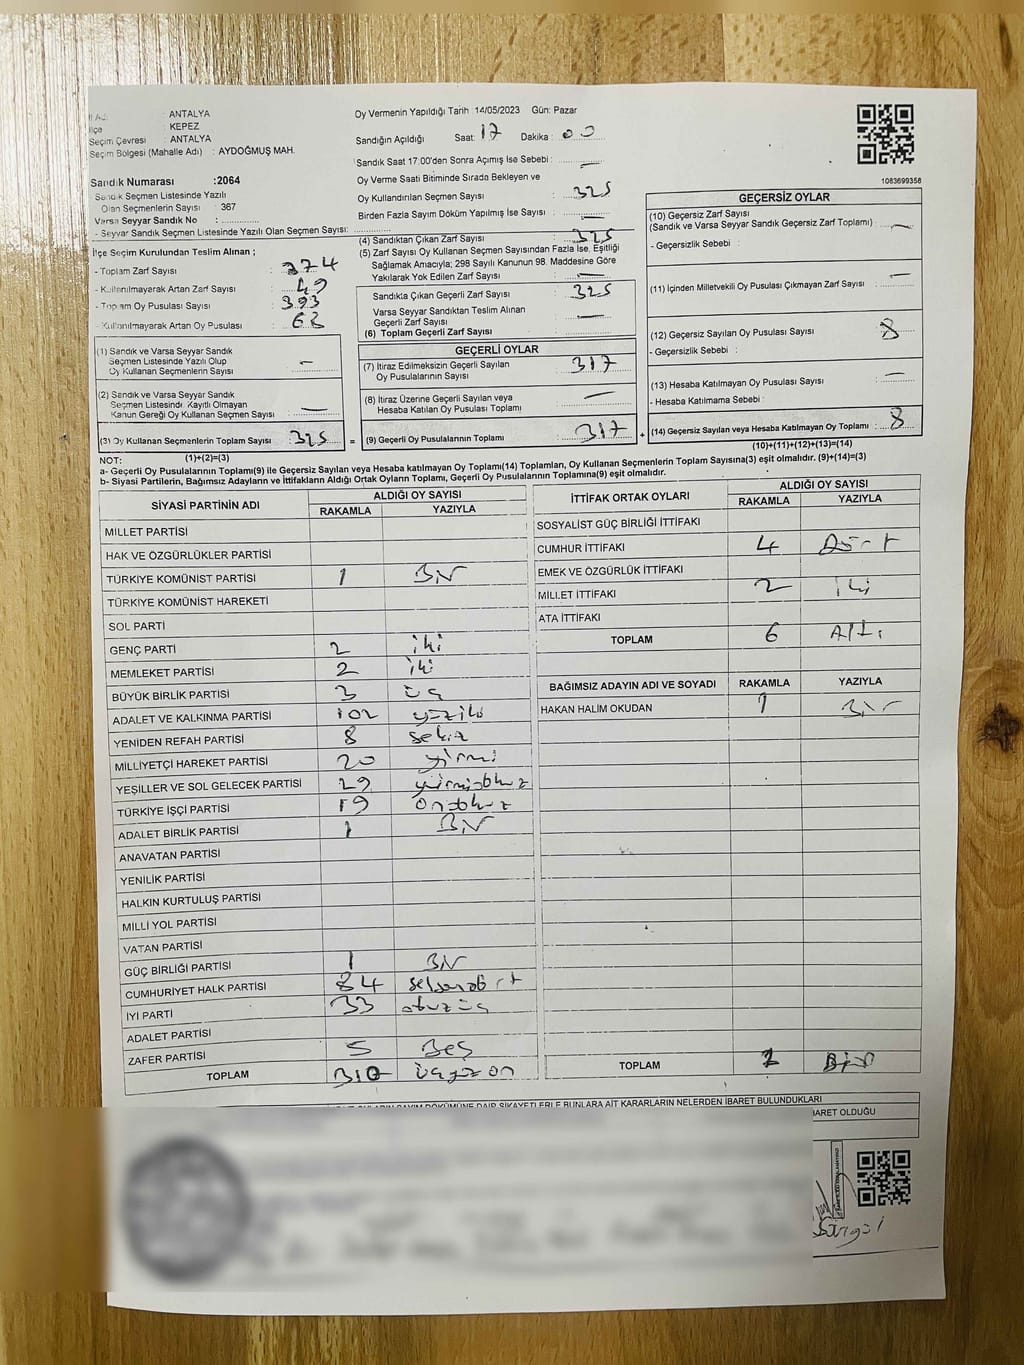 İl Adı : ANTALYA
İlçe : KEPEZ
Seçim Çevresi : ANTALYA
Seçim Bölgesi (Mahalle Adı) : AYDOĞMUŞ MAH.
Sandık Numarası :2064
Sandık Seçmen Listesinde Yazılı
Olan Seçmenlerin Sayısı : 367
Varsa Seyyar Sandık No :
- Seyyar Sandık Seçmen Listesinde Yazılı Olan Seçmen Sayısı:
İlçe Seçim Kurulundan Teslim Alınan ;
- Toplam Zarf Sayısı : 374
- Kullanılmayarak Artan Zarf Sayısı : 49
- Toplam Oy Pusulası Sayısı : 393
- Kullanılmayarak Artan Oy Pusulası : 68
(1) Sandık ve Varsa Seyyar Sandık
Seçmen Listesinde Yazılı Olup
Oy Kullanan Seçmenlerin Sayısı : —
(2) Sandık ve Varsa Seyyar Sandık
Seçmen Listesinde Kayıtlı Olmayan
Kanun Gereği Oy Kullanan Seçmen Sayısı : —
(3) Oy Kullanan Seçmenlerin Toplam Sayısı : 325 =
(1)+(2)=(3)
Oy Vermenin Yapıldığı Tarih : 14/05/2023 Gün: Pazar
Sandığın Açıldığı Saat: 17 Dakika : 00
Sandık Saat 17:00'den Sonra Açımış İse Sebebi : —
Oy Verme Saati Bitiminde Sırada Bekleyen ve
Oy Kullandırılan Seçmen Sayısı : 325
Birden Fazla Sayım Döküm Yapılmış İse Sayısı : —
(4) Sandıktan Çıkan Zarf Sayısı : 325
(5) Zarf Sayısı Oy Kullanan Seçmen Sayısından Fazla İse, Eşitliği
Sağlamak Amacıyla; 298 Sayılı Kanunun 98. Maddesine Göre
Yakılarak Yok Edilen Zarf Sayısı : —
Sandıkta Çıkan Geçerli Zarf Sayısı : 325
Varsa Seyyar Sandıktan Teslim Alınan
Geçerli Zarf Sayısı : —
(6) Toplam Geçerli Zarf Sayısı :
GEÇERLİ OYLAR
(7) İtiraz Edilmeksizin Geçerli Sayılan
Oy Pusulalarının Sayısı : 317
(8) İtiraz Üzerine Geçerli Sayılan veya
Hesaba Katılan Oy Pusulası Toplamı : —
(9) Geçerli Oy Pusulalarının Toplamı : 317 +
1083699358
GEÇERSİZ OYLAR
(10) Geçersiz Zarf Sayısı
(Sandık ve Varsa Seyyar Sandık Geçersiz Zarf Toplamı) : —
- Geçersizlik Sebebi :
(11) İçinden Milletvekili Oy Pusulası Çıkmayan Zarf Sayısı : —
(12) Geçersiz Sayılan Oy Pusulası Sayısı : 8
- Geçersizlik Sebebi :
(13) Hesaba Katılmayan Oy Pusulası Sayısı : —
- Hesaba Katılmama Sebebi :
(14) Geçersiz Sayılan veya Hesaba Katılmayan Oy Toplamı : 8
(10)+(11)+(12)+(13)=(14)
NOT:
a- Geçerli Oy Pusulalarının Toplamı(9) ile Geçersiz Sayılan veya Hesaba katılmayan Oy Toplamı(14) Toplamları, Oy Kullanan Seçmenlerin Toplam Sayısına(3) eşit olmalıdır. (9)+(14)=(3)
b- Siyasi Partilerin, Bağımsız Adayların ve İttifakların Aldığı Ortak Oyların Toplamı, Geçerli Oy Pusulalarının Toplamına(9) eşit olmalıdır.
SİYASİ PARTİNİN ADI ALDIĞI OY SAYISI
RAKAMLA YAZIYLA
MİLLET PARTİSİ
HAK VE ÖZGÜRLÜKLER PARTİSİ
TÜRKİYE KOMÜNİST PARTİSİ 1 Bir
TÜRKİYE KOMÜNİST HAREKETİ
SOL PARTİ
GENÇ PARTİ 2 iki
MEMLEKET PARTİSİ 2 iki
BÜYÜK BİRLİK PARTİSİ 3 üç
ADALET VE KALKINMA PARTİSİ 102 yüziki
YENİDEN REFAH PARTİSİ 8 sekiz
MİLLİYETÇİ HAREKET PARTİSİ 20 yirmi
YEŞİLLER VE SOL GELECEK PARTİSİ 29 yirmidokuz
TÜRKİYE İŞÇİ PARTİSİ 19 ondokuz
ADALET BİRLİK PARTİSİ 1 Bir
ANAVATAN PARTİSİ
YENİLİK PARTİSİ
HALKIN KURTULUŞ PARTİSİ
MİLLİ YOL PARTİSİ
VATAN PARTİSİ
GÜÇ BİRLİĞİ PARTİSİ 1 Bir
CUMHURİYET HALK PARTİSİ 84 seksendört
İYİ PARTİ 33 otuzüç
ADALET PARTİSİ
ZAFER PARTİSİ 5 Beş
TOPLAM 310 üçyüzon
İTTİFAK ORTAK OYLARI ALDIĞI OY SAYISI
RAKAMLA YAZIYLA
SOSYALİST GÜÇ BİRLİĞİ İTTİFAKI
CUMHUR İTTİFAKI 4 Dört
EMEK VE ÖZGÜRLÜK İTTİFAKI
MİLLET İTTİFAKI 2 iki
ATA İTTİFAKI
TOPLAM 6 Altı
BAĞIMSIZ ADAYIN ADI VE SOYADI RAKAMLA YAZIYLA
HAKAN HALİM OKUDAN 1 Bir
TOPLAM 1 Bir
SAYIM DÖKÜMÜNE DAİR ŞİKAYETLERLE BUNLARA AİT KARARLARIN NELERDEN İBARET BULUNDUKLARI
İBARET OLDUĞU